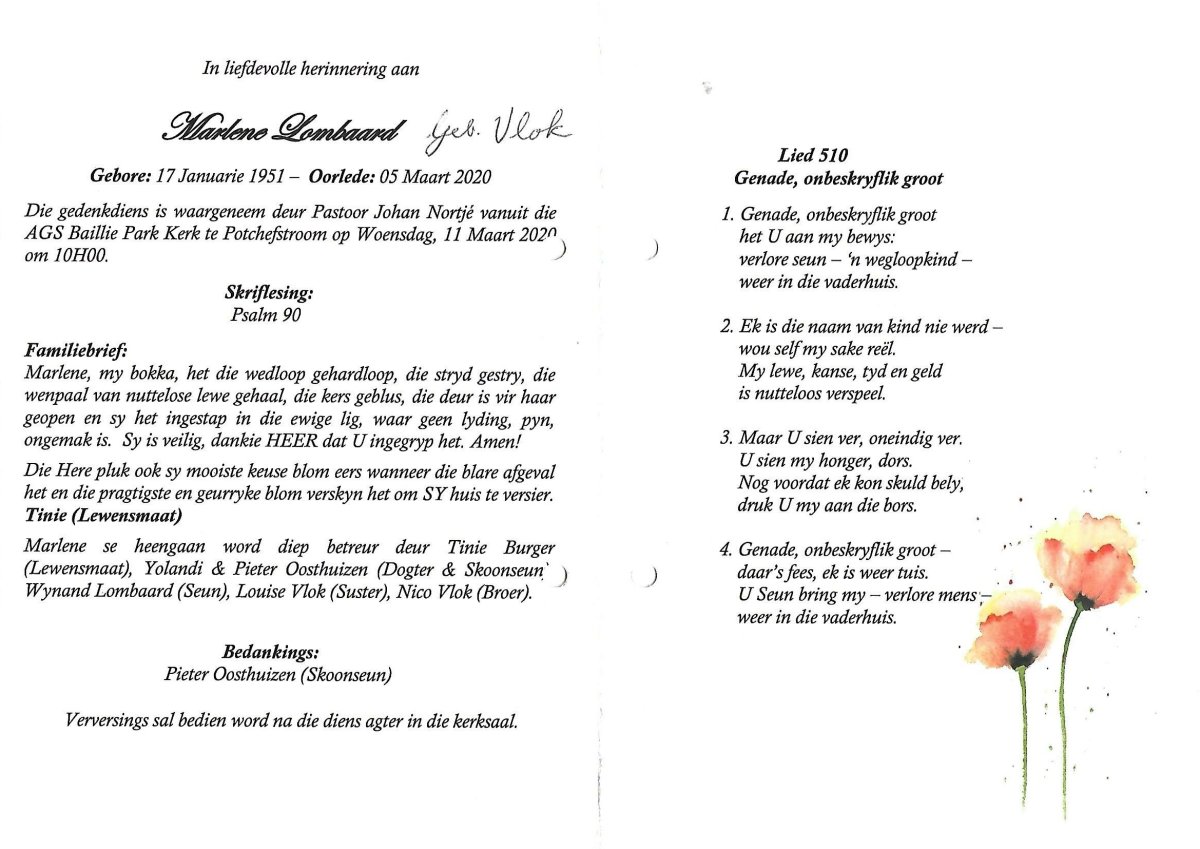 In liefdevolle herinnering aan
Marlene Lombaard geb. Vlok
Gebore: 17 Januarie 1951 – Oorlede: 05 Maart 2020
Die gedenkdiens is waargeneem deur Pastoor Johan Nortjé vanuit die
AGS Baillie Park Kerk te Potchefstroom op Woensdag, 11 Maart 2020
om 10H00.
Skriflesing:
Psalm 90
Familiebrief:
Marlene, my bokka, het die wedloop gehardloop, die stryd gestry, die
wenpaal van nuttelose lewe gehaal, die kers geblus, die deur is vir haar
geopen en sy het ingestap in die ewige lig, waar geen lyding, pyn,
ongemak is. Sy is veilig, dankie HEER dat U ingegryp het. Amen!
Die Here pluk ook sy mooiste keuse blom eers wanneer die blare afgeval
het en die pragtigste en geurryke blom verskyn het om SY huis te versier.
Tinie (Lewensmaat)
Marlene se heengaan word diep betreur deur Tinie Burger
(Lewensmaat), Yolandi & Pieter Oosthuizen (Dogter & Skoonseun)
Wynand Lombaard (Seun), Louise Vlok (Suster), Nico Vlok (Broer).
Bedankings:
Pieter Oosthuizen (Skoonseun)
Verversings sal bedien word na die diens agter in die kerksaal.
Lied 510
Genade, onbeskryflik groot
1. Genade, onbeskryflik groot
het U aan my bewys:
verlore seun – ‘n wegloopkind –
weer in die vaderhuis.
2. Ek is die naam van kind nie werd –
wou self my sake reël.
My lewe, kanse, tyd en geld
is nutteloos verspeel.
3. Maar U sien ver, oneindig ver.
U sien my honger, dors.
Nog voordat ek kon skuld bely,
druk U my aan die bors.
4. Genade, onbeskryflik groot –
daar’s fees, ek is weer tuis.
U Seun bring my – verlore mens –
weer in die vaderhuis.